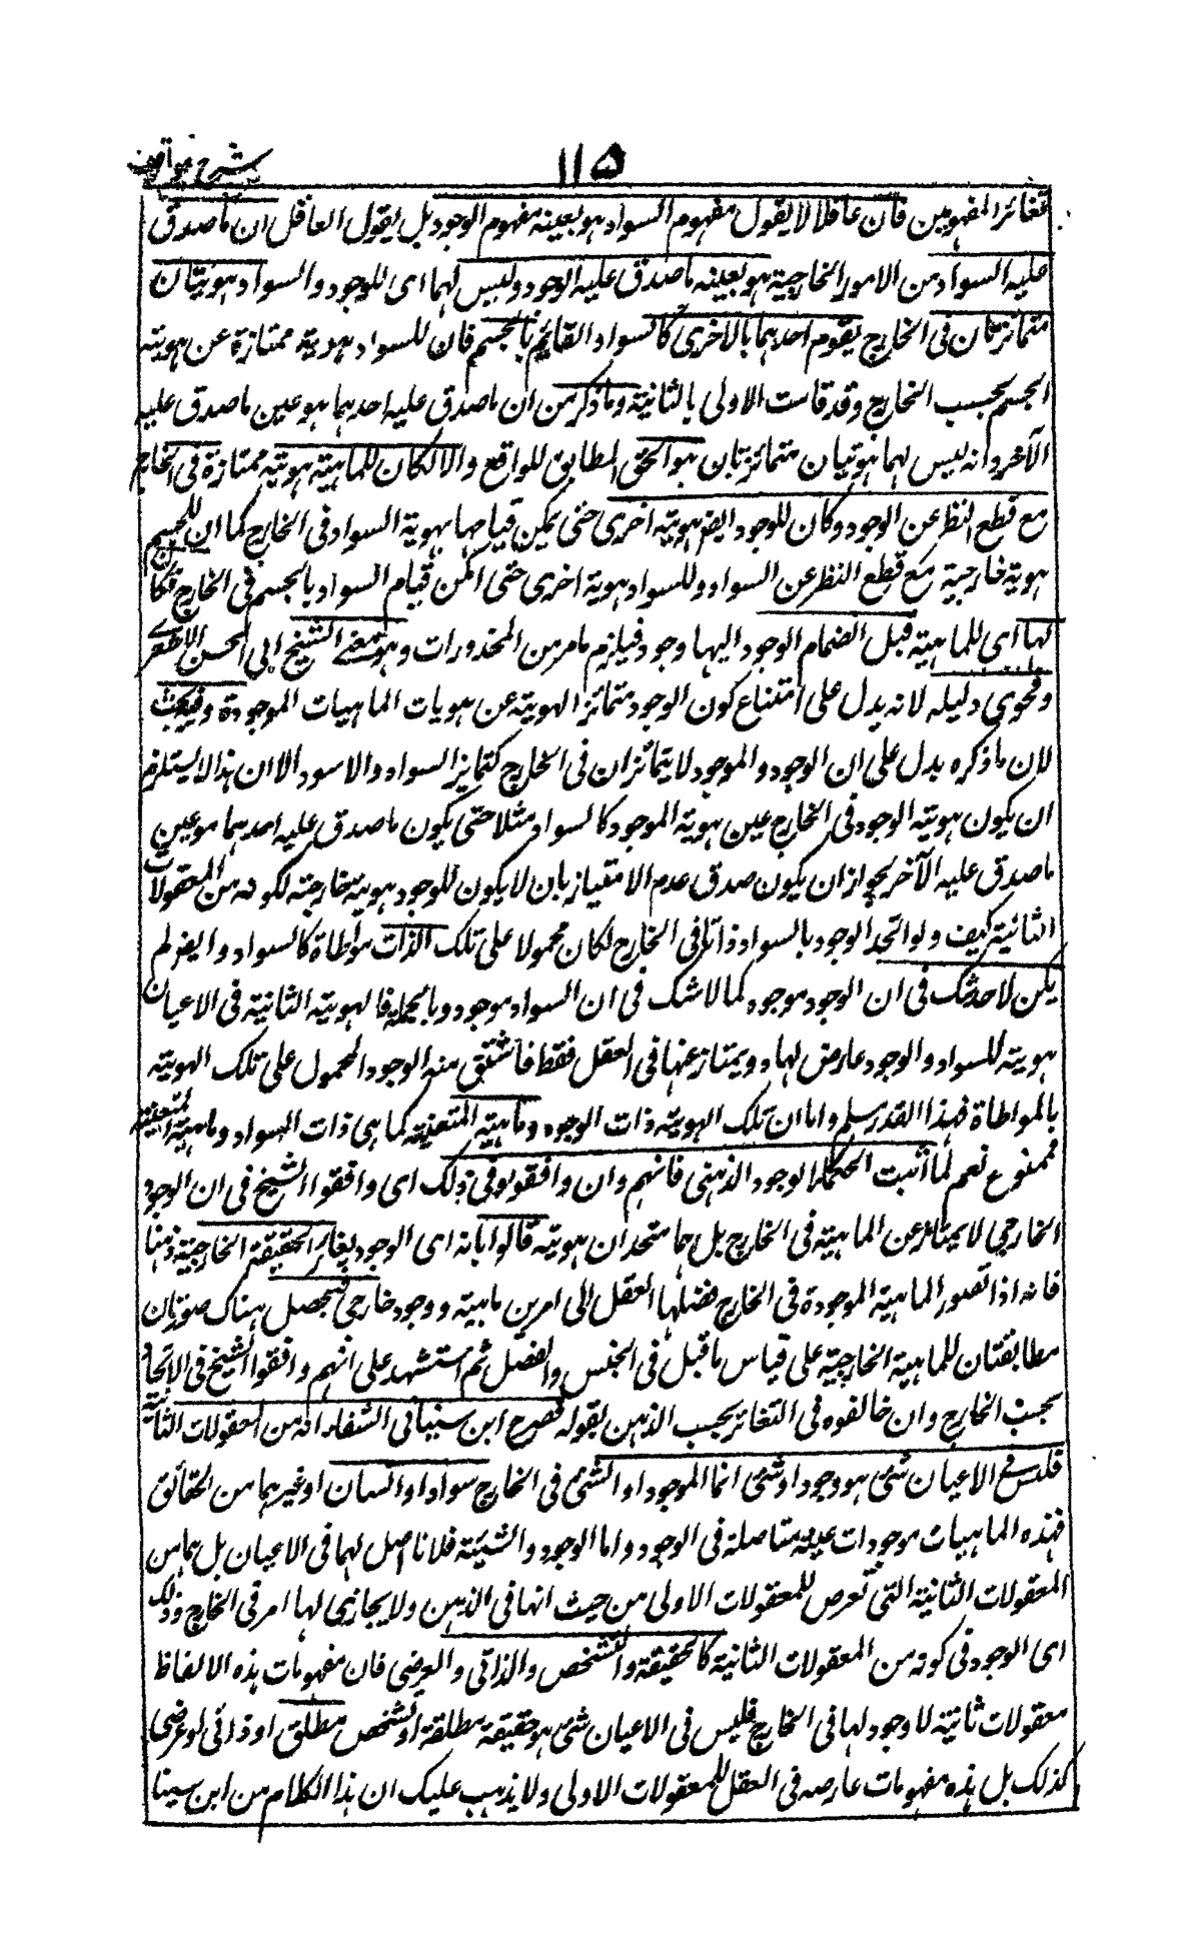 شرح مواقف
١١٥
تغائر المفهومين فان عاقلا لا يقول مفهوم السواد هو بعينه مفهوم الوجود بل يقول العاقل ان ما صدق
عليه السواد من الامور الخارجية هو بعينه ما صدق عليه الوجود وليس لهما اى للوجود والسواد هويتان
متمائزتان فى الخارج يقوم احدهما بالاخرى كالسواد القائم بالجسم فان للسواد هوية ممتازة عن هوية
الجسم بحسب الخارج وقد قامت الاولى بالثانية وما ذكر من ان ما صدق عليه احدهما هو عين ما صدق عليه
الآخر وانه ليس لهما هويتان متمائزتان هو الحق المطابق للواقع والا لكان للماهية هوية ممتازة فى الخارج
مع قطع النظر عن الوجود وكان للوجود ايضا هوية اخرى حتى يمكن قيامها بهوية السواد فى الخارج كما ان للجسم
هوية خارجية مع قطع النظر عن السواد وللسواد هوية اخرى حتى امكن قيام السواد بالجسم فى الخارج فكان
لها اى للماهية قبل انضمام الوجود اليها وجود فيلزم ما مر من المحذورات وهو معنى الشيخ ابى الحسن الاشعرى
وفحوى دليله لانه يدل على امتناع كون الوجود متمائز الهوية عن هويات الماهيات الموجودة وفيه بحث
لان ما ذكره يدل على ان الوجود والموجود لا يتمائزان فى الخارج كتمايز السواد والاسود الا ان هذا لا يستلزم
ان يكون هوية الوجود فى الخارج عين هوية الموجود كالسواد مثلا حتى يكون ما صدق عليه احدهما هو عين
ما صدق عليه الآخر بجواز ان يكون صدق عدم الامتياز بان لا يكون للوجود هوية خارجية لكونه من المعقولات
الثانية كيف ولو اتحد الوجود بالسواد ذاتا فى الخارج لكان محمولا على تلك الذات مواطاة كالسواد وايضا لم
يكن لاحد شك فى ان الوجود موجود كما لا شك فى ان السواد موجود وبالجملة فالهوية الثانية فى الاعيان
هوية للسواد والوجود عارض لها وويمتاز عنها فى العقل فقط فاشتق منه الوجود المحمول على تلك الهوية
بالمواطاة فهذا القدر مسلم واما ان تلك الهوية ذات الوجود وماهيته المتعينة كما هى ذات السواد وماهيته المتعينة
فممنوع نعم لما اثبت الحكماء الوجود الذهنى فانهم وان وافقوه فى ذلك اى وافقوا الشيخ فى ان الوجود
الخارجي لا يمتاز عن الماهية فى الخارج بل هما متحدان هوية قالوا بانه اى الوجود يغائر الحقيقة الخارجية ذهنا
فانه اذا تصور الماهية الموجودة فى الخارج فصلها العقل الى امرين ماهية ووجود خارجى فيحصل هناك صورتان
مطابقتان للماهية الخارجية على قياس ما قيل فى الجنس والفصل ثم استشهد على انهم وافقوا الشيخ فى الاتحاد
بحسب الخارج وان خالفوه فى التغائر بحسب الذهن بقوله فصرح ابن سينا فى الشفاء انه من المعقولات الثانية
فليس فى الاعيان شئ هو وجود او شئ انما الموجود او الشئ فى الخارج سواد او انسان او غيرهما من الحقائق
فهذه الماهيات موجودات عينية متاصلة فى الوجود واما الوجود والشيئية فلا تاصل لهما فى الاعيان بل هما من
المعقولات الثانية التى تعرض للمعقولات الاولى من حيث انها فى الذهن ولا يحاذى لها امر فى الخارج وذلك
اى الوجود فى كونه من المعقولات الثانية كالحقيقة والتشخص والذاتى والعرضى فان مفهومات هذه الالفاظ
معقولات ثانية لا وجود لها فى الخارج فليس فى الاعيان شئ هو حقيقة مطلقة او تشخص مطلق او ذاتى او عرضى
كذلك بل هذه مفهومات عارضه فى العقل للمعقولات الاولى ولا يذهب عليك ان هذا الكلام من ابن سينا